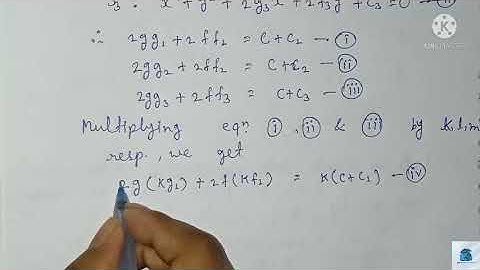 3. x² + y² + 2g₃x + 2f₃y + C₃ = 0
∴ 2gg₁ + 2ff₂ = C + C₁ — (i)
2gg₂ + 2ff₂ = C + C₂ — (ii)
2gg₃ + 2ff₃ = C + C₃ — (iii)
Multiplying eqn (i), (ii) & (iii) by K, l, m
resp., we get
2g(Kg₁) + 2f(Kf₁) = K(C + C₁) — (iv)